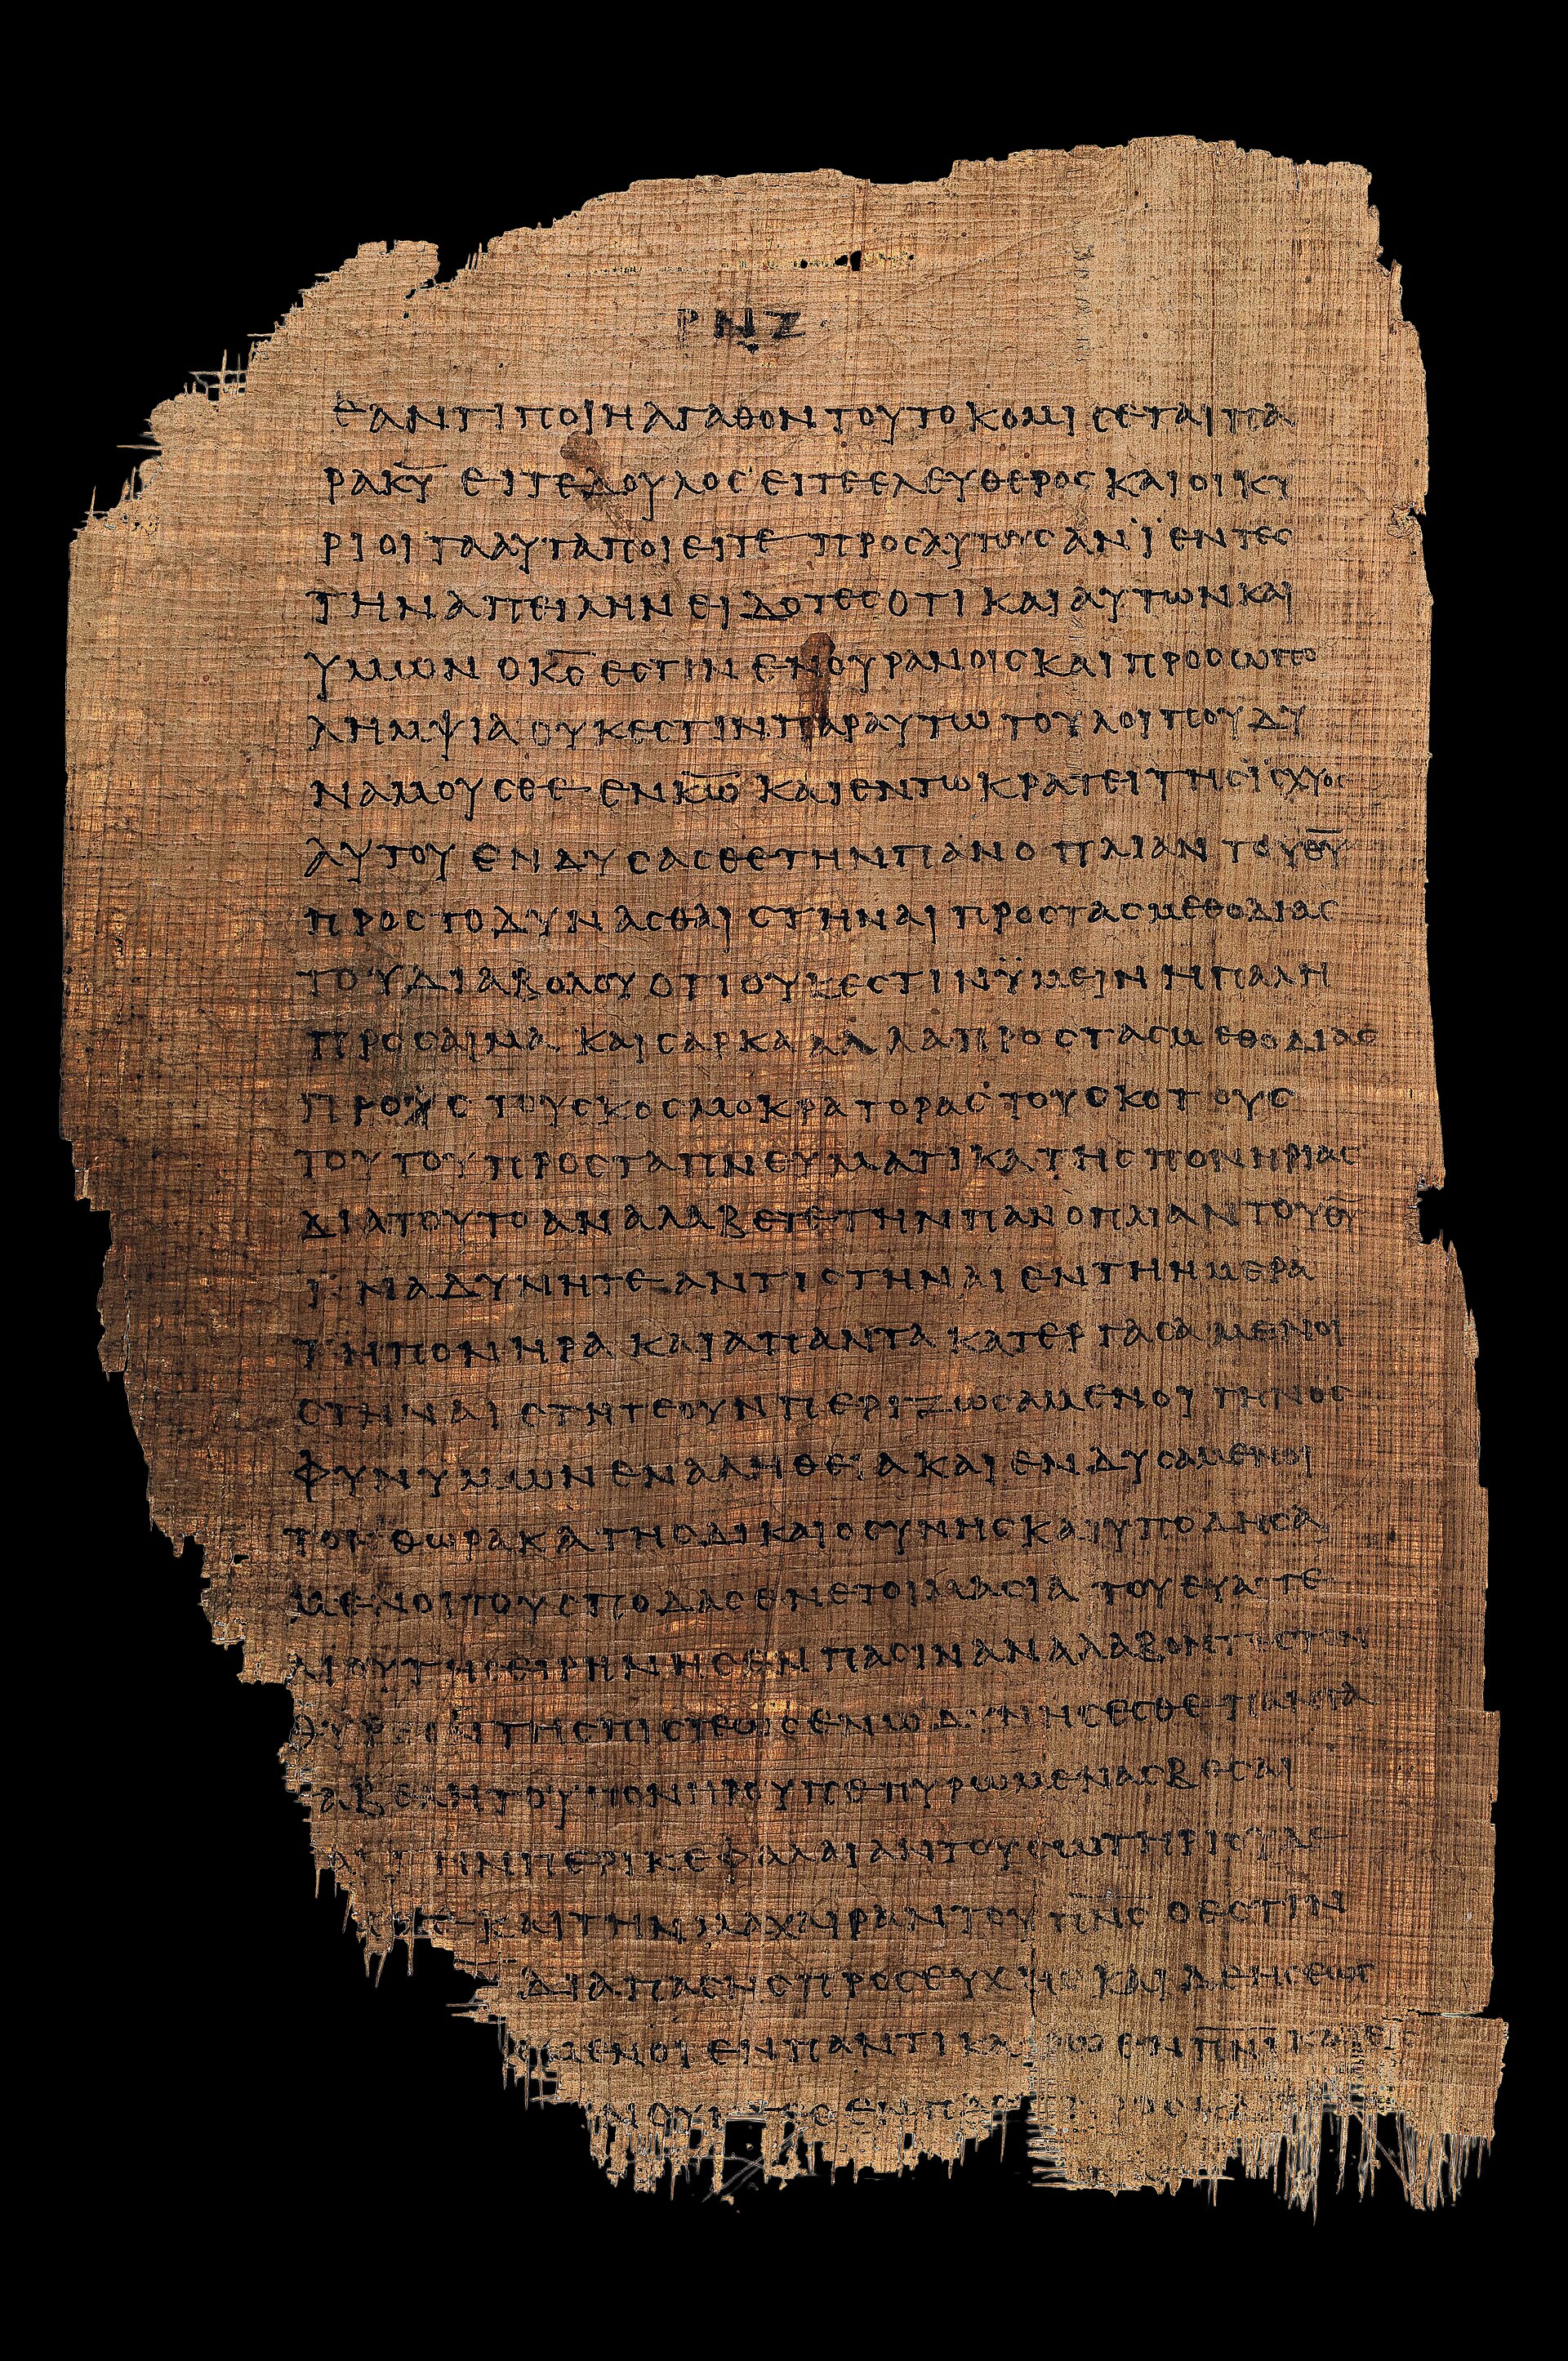 ΡΝΖ
ΕΑΝΤΙΠΟΙΗΑΓΑΘΟΝΤΟΥΤΟΚΟΜΙΣΕΤΑΙΠΑ
ΡΑΚ̅Υ̅ ΕΙΤΕΔΟΥΛΟΣΕΙΤΕΕΛΕΥΘΕΡΟΣΚΑΙΟΙΚΥ
ΡΙΟΙΤΑΑΥΤΑΠΟΙΕΙΤΕ ΠΡΟΣΑΥΤΟΥΣΑΝΪΕΝΤΕΣ
ΤΗΝΑΠΕΙΛΗΝΕΙΔΟΤΕΣΟΤΙΚΑΙΑΥΤΩΝΚΑΙ
ΥΜΩΝΟΚ̅Σ̅ΕΣΤΙΝΕΝΟΥΡΑΝΟΙΣΚΑΙΠΡΟΣΩΠΟ
ΛΗΜΨΙΑΟΥΚΕΣΤΙΝΠΑΡΑΥΤΩΤΟΥΛΟΙΠΟΥΔΥ
ΝΑΜΟΥΣΘΕΕΝΚ̅Ω̅ΚΑΙΕΝΤΩΚΡΑΤΕΙΤΗΣΪΣΧΥΟΣ
ΑΥΤΟΥΕΝΔΥΣΑΣΘΕΤΗΝΠΑΝΟΠΛΙΑΝΤΟΥΘ̅Υ̅
ΠΡΟΣΤΟΔΥΝΑΣΘΑΙΣΤΗΝΑΙΠΡΟΣΤΑΣΜΕΘΟΔΙΑΣ
ΤΟΥΔΙΑΒΟΛΟΥΟΤΙΟΥΚΕΣΤΙΝΫΜΕΙΝΗΠΑΛΗ
ΠΡΟΣΑΙΜΑ ΚΑΙΣΑΡΚΑΑΛΛΑΠΡΟΣΤΑΣΜΕΘΟΔΙΑΣ
ΠΡΟΣΤΟΥΣΚΟΣΜΟΚΡΑΤΟΡΑΣΤΟΥΣΚΟΤΟΥΣ
ΤΟΥΤΟΥΠΡΟΣΤΑΠΝΕΥΜΑΤΙΚΑΤΗΣΠΟΝΗΡΙΑΣ
ΔΙΑΤΟΥΤΟΑΝΑΛΑΒΕΤΕΤΗΝΠΑΝΟΠΛΙΑΝΤΟΥΘ̅Υ̅
ΪΝΑΔΥΝΗΤΕΑΝΤΙΣΤΗΝΑΙΕΝΤΗΗΜΕΡΑ
ΤΗΠΟΝΗΡΑΚΑΙΑΠΑΝΤΑΚΑΤΕΡΓΑΣΑΜΕΝΟΙ
ΣΤΗΝΑΙΣΤΗΤΕΟΥΝΠΕΡΙΖΩΣΑΜΕΝΟΙΤΗΝΟΣ
ΦΥΝΥΜΩΝΕΝΑΛΗΘΕΙΑΚΑΙΕΝΔΥΣΑΜΕΝΟΙ
ΤΟΝΘΩΡΑΚΑΤΗΣΔΙΚΑΙΟΣΥΝΗΣΚΑΙΥΠΟΔΗΣΑ
ΜΕΝΟΙΤΟΥΣΠΟΔΑΣΕΝΕΤΟΙΜΑΣΙΑΤΟΥΕΥΑΓΓΕ
ΛΙΟΥΤΗΣΕΙΡΗΝΗΣΕΝΠΑΣΙΝΑΝΑΛΑΒΟΝΤΕΣΤΟΝ
ΘΥΡΕΟΝΤΗΣΠΙΣΤΕΩΣΕΝΩΔΥΝΗΣΕΣΘΕΠΑΝΤΑ
ΤΑΒΕΛΗΤΟΥΠΟΝΗΡΟΥΠΕΠΥΡΩΜΕΝΑΣΒΕΣΑΙ
ΚΑΙΤΗΝΠΕΡΙΚΕΦΑΛΑΙΑΝΤΟΥΣΩΤΗΡΙΟΥΔΕ
ΚΑΙΤΗΝΜΑΧΑΙΡΑΝΤΟΥΠ̅Ν̅Σ̅ΟΕΣΤΙΝ
ΔΙΑΠΑΣΗΣΠΡΟΣΕΥΧΗΣΚΑΙΔΕΗΣΕΩΣ
ΜΕΝΟΙΕΝΠΑΝΤΙΚΑΙΡΩΕΝΠ̅Ν̅Ι̅ΚΑΙΕΙΣ
ΕΝΠΑ